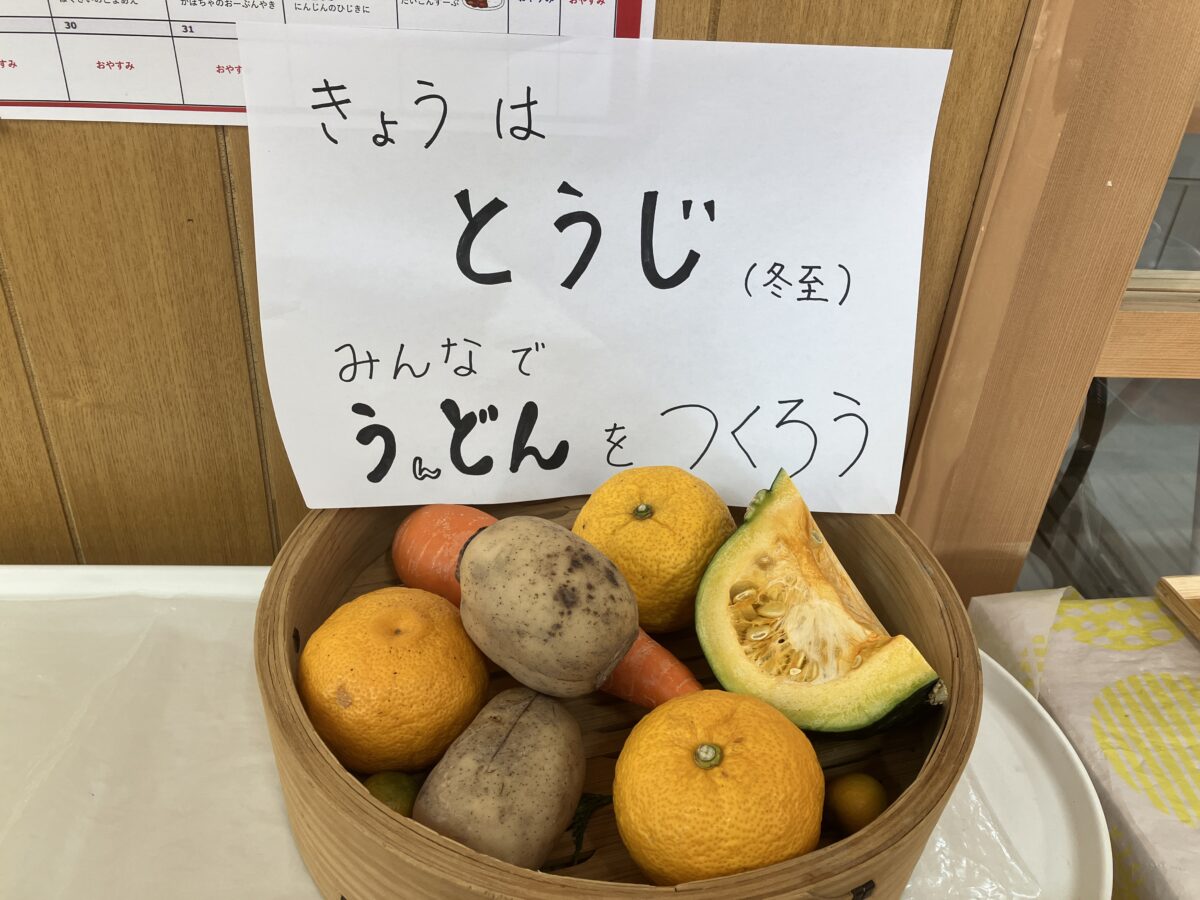 はくさいのごまあえ
かぼちゃのおーぶんやき
にんじんのひじきに
だいこんすーぷ
おやすみ
おやすみ
30
31
すみ
おやすみ
おやす
きょうは
とうじ
(冬至)
みんなで
うんどんをつくろう